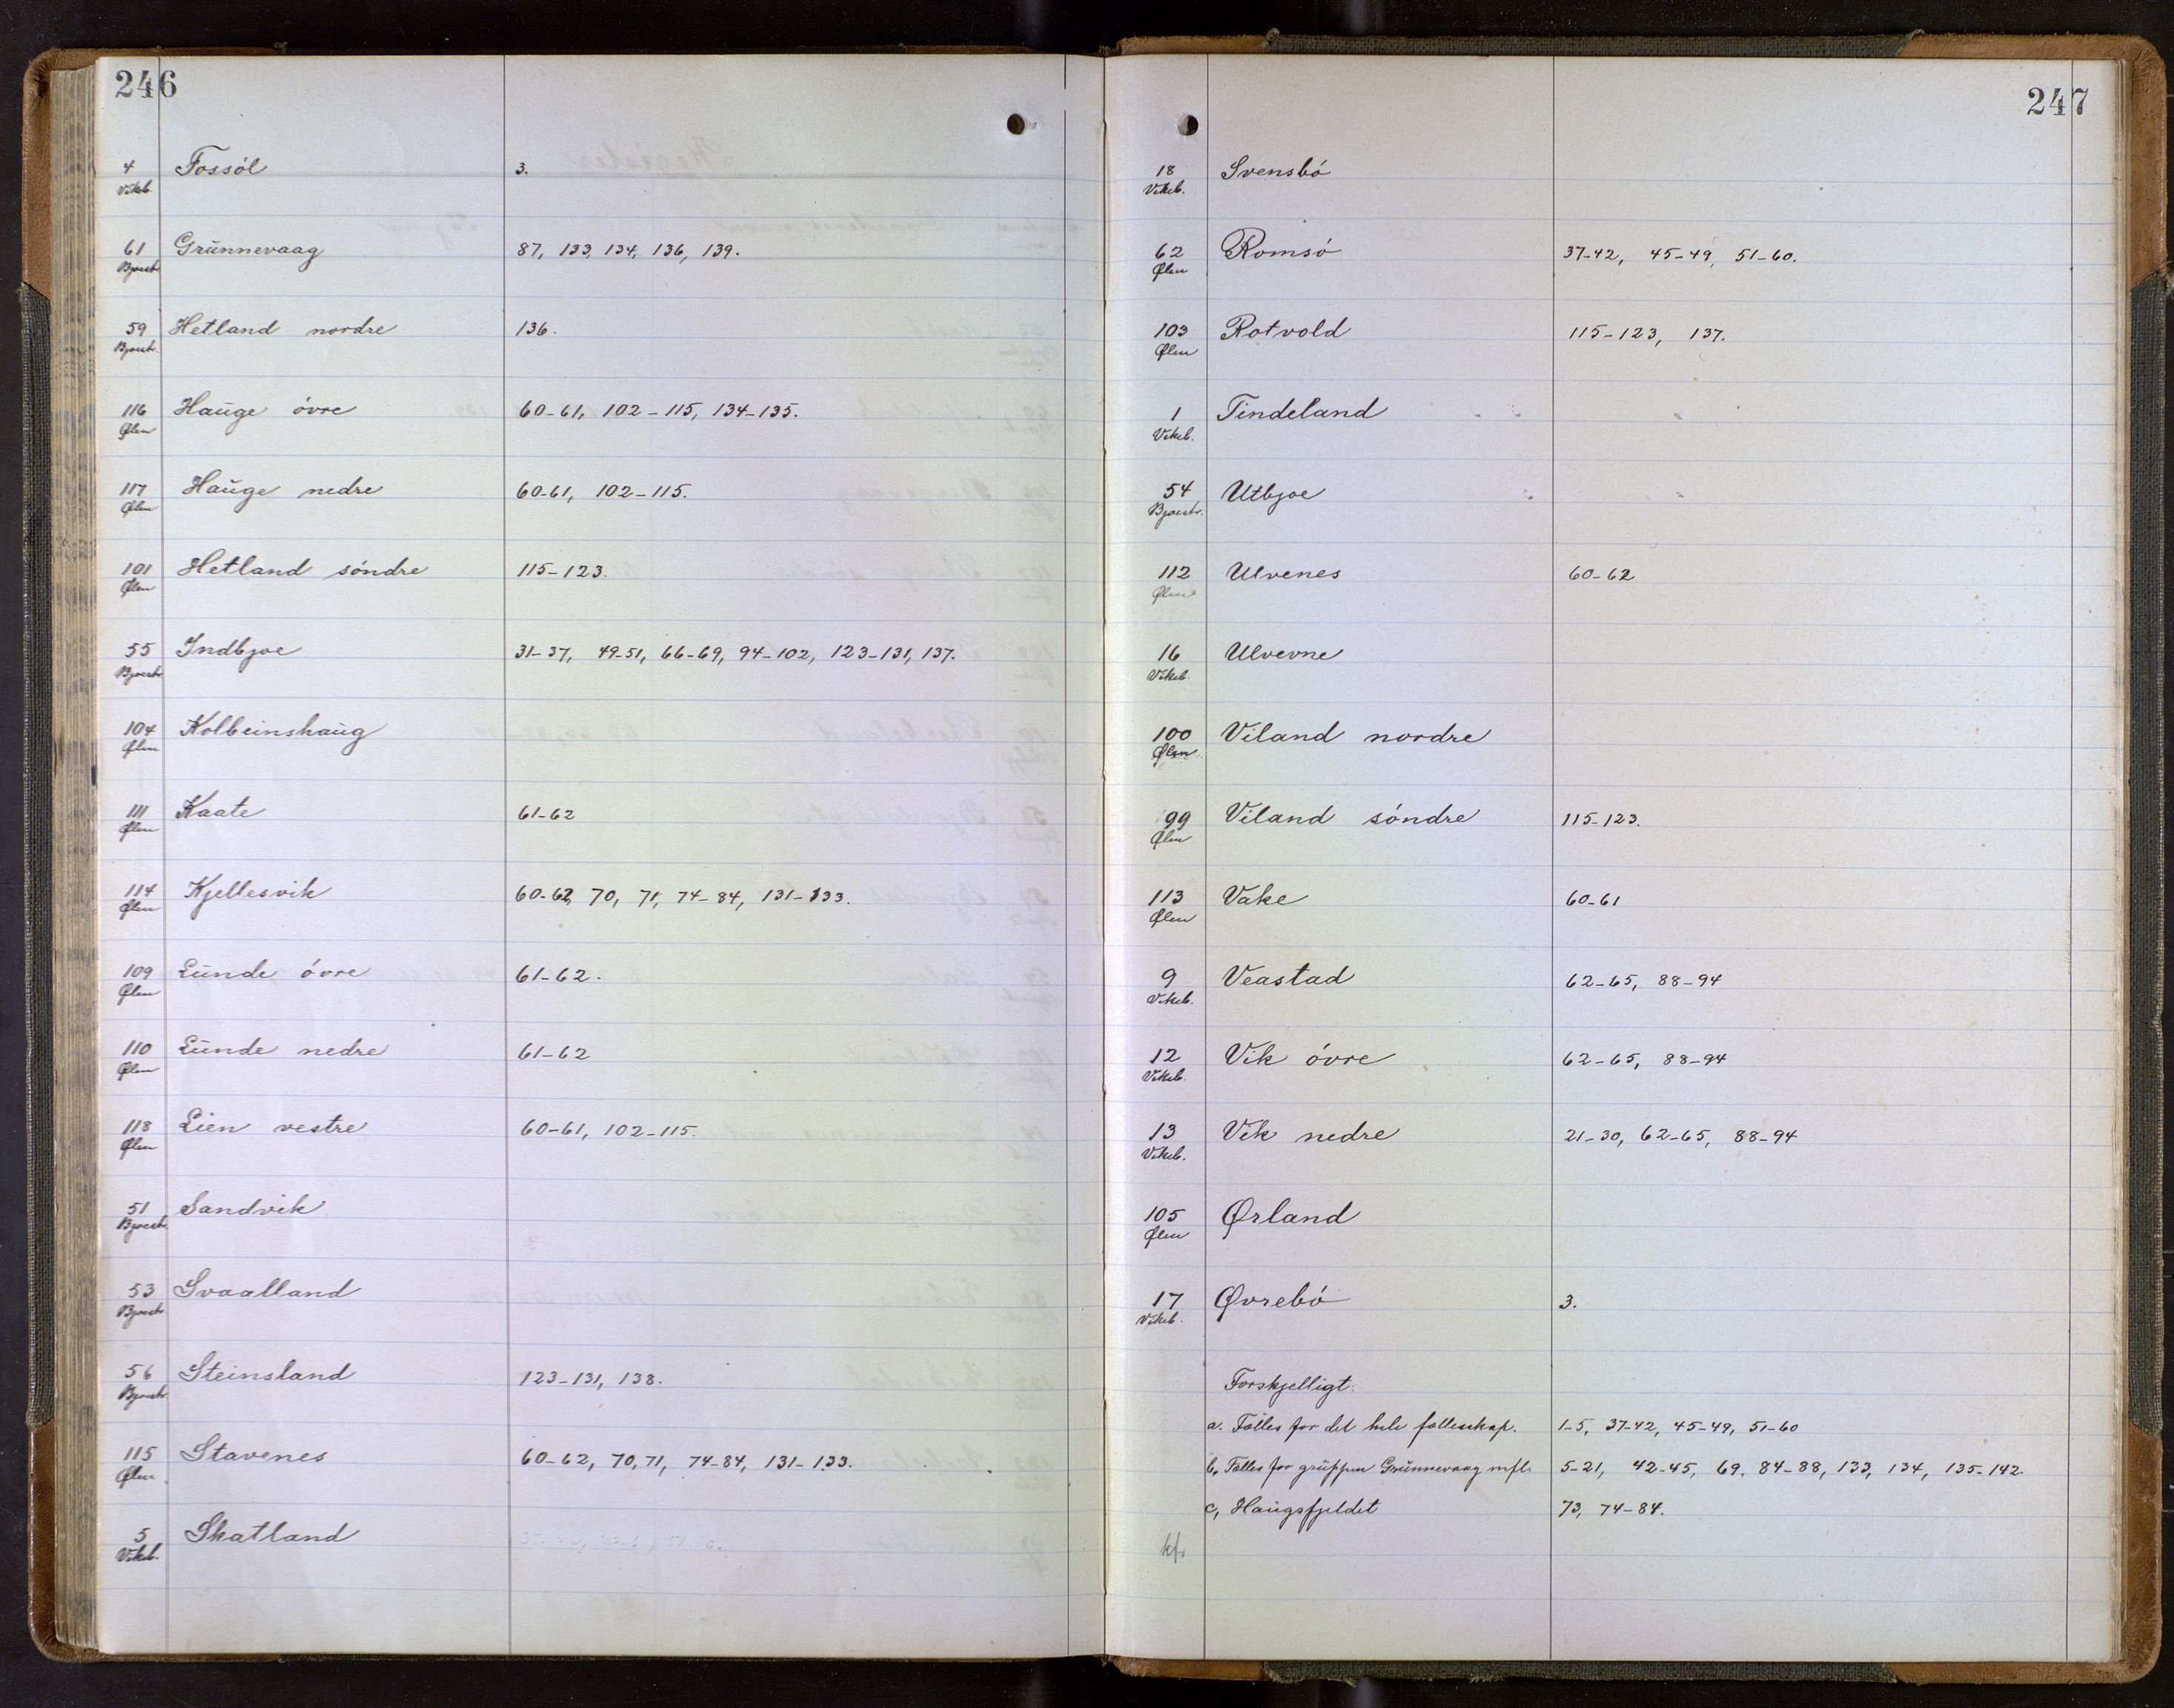 246
4 Fossöl 3.
Vikeb.
61 Grünnevaag 87, 133, 134, 136, 139.
Bjoestr.
59 Hetland nordre 136.
Bjoestr.
116 Haüge övre 60-61, 102-115, 134-135.
Ølen
117 Haüge nedre 60-61, 102-115.
Ølen
101 Hetland söndre 115-123.
Ølen
55 Indbjoe 31-37, 49-51, 66-69, 94-102, 123-131, 137.
Bjoestr.
104 Kolbeinshaüg
Ølen
111 Kaate 61-62
Ølen
114 Kjellesvik 60-62, 70, 71, 74-84, 131-133.
Ølen
109 Lünde övre 61-62.
Ølen
110 Lünde nedre 61-62
Ølen
118 Lien vestre 60-61, 102-115.
Ølen
51 Sandvik
Bjoestr.
53 Svaalland
Bjoestr.
56 Steinsland 123-131, 138.
Bjoestr.
115 Stavenes 60-62, 70, 71, 74-84, 131-133.
Ølen
5 Skatland
Vikeb.
247
18 Svensbö
Vikeb.
62 Romsö 37-42, 45-49, 51-60.
Ølen
103 Rotvold 115-123, 137.
Ølen
1 Tindeland
Vikeb.
54 Utbjoe
Bjoestr.
112 Ulvenes 60-62
Ølen
16 Ulvevne
Vikeb.
100 Viland nordre
Ølen
99 Viland söndre 115-123.
Ølen
113 Vake 60-61
Ølen
9 Veastad 62-65, 88-94
Vikeb.
12 Vik övre 62-65, 88-94
Vikeb.
13 Vik nedre 21-30, 62-65, 88-94
Vikeb.
105 Ørland
Ølen
17 Øvrebö 3.
Vikeb.
Forskjelligt.
a. Fælles for det hele fællesskap. 1-5, 37-42, 45-49, 51-60
b, Fælles for grüppen Grünnevaag mfl. 5-21, 42-45, 69, 84-88, 133, 134, 135-142.
c, Haügsfjeldet 73, 74-84.
kf.